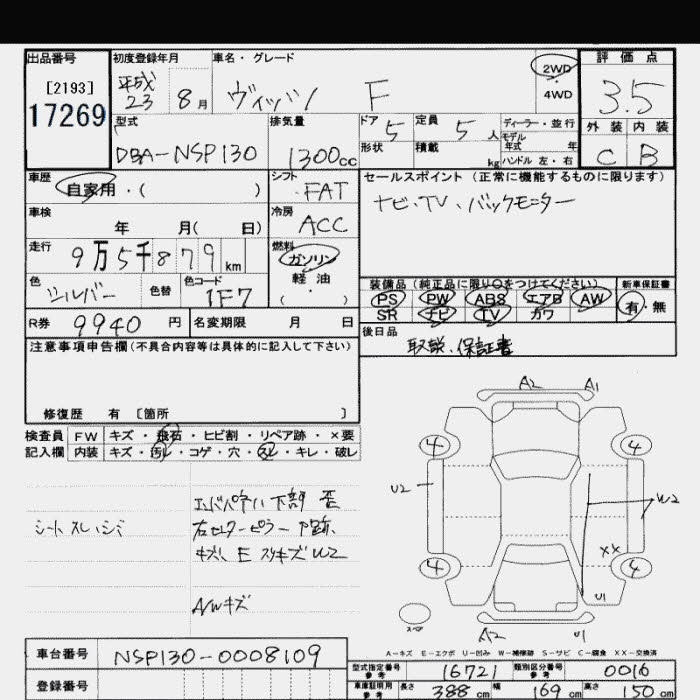 出品番号 初度登録年月 車名・グレード 2WD・4WD 評価点
[2193] 平成23 8月 ヴィッツ F 3.5
17269 型式 排気量 ドア 5 定員 5人 ディーラー・並行 外装 内装
DBA-NSP130 1300cc 形状 積載 kg モデル年式 年 C B
ハンドル 左・右
車歴 自家用・( ) シフト FAT セールスポイント (正常に機能するものに限ります)
車検 年 月( 日) 冷房 ACC ナビ、TV、バックモニター
走行 9万5千879km 燃料 ガソリン 軽油 ( )
色 シルバー 色替 色コード 1F7 装備品 (純正品に限り○をつけてください) 新車保証書
PS PW ABS エアB AW 有・無
SR ナビ TV カワ
R券 9940円 名変期限 月 日 後日品
取説、保証書
注意事項申告欄 (不具合内容等は具体的に記入して下さい)
修復歴 有 [箇所 ]
検査員 FW キズ・飛石・ヒビ割・リペア跡・×要
記入欄 内装 キズ・汚レ・コゲ・穴・スレ・キレ・破レ
A2 A1
4 4
U2 W2
エンドパネル 下部 歪
シート スレ、シミ 右センターピラー
キズ、E W2
XX
4 4
U1
AWキズ
A2 U1
A-キズ E-エクボ U-凹み W-補修跡 S-サビ C-腐食 XX-交換済
車台番号 NSP130-0008109
登録番号
型式指定番号 参考 16721 類別区分番号 参考 0016
車庫証明用 参考 長さ 388cm 幅 169cm 高さ 150cm